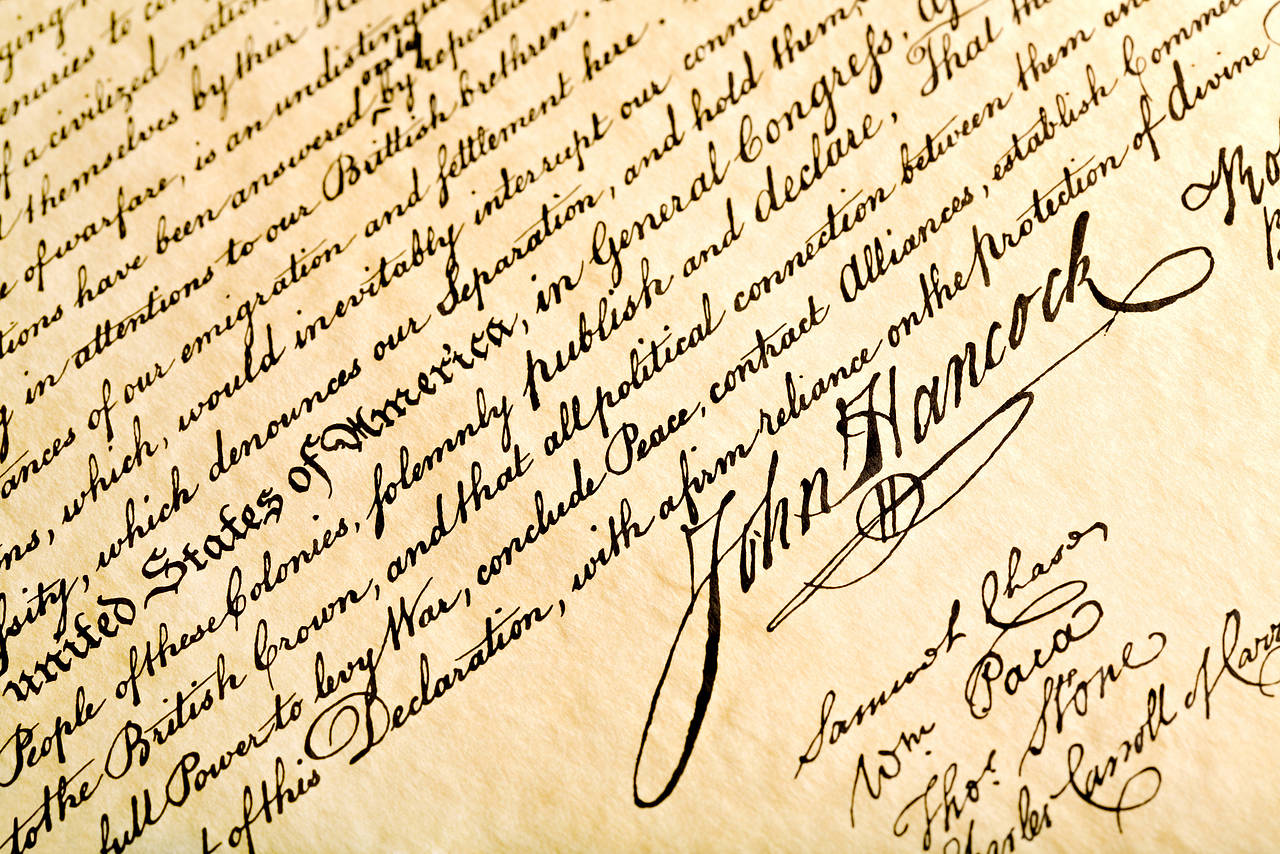 ging
enaries to
of a civilized nation
themselves by their
of warfare, is an undistinguis
tions have been answered only by repeated
in attentions to our Brittish brethren.
ances of our emigration and ſettlement here.
ns, which, would inevitably interrupt our connec
ſsity, which denounces our Separation, and hold them,
united States of America, in General Congreſs,
People of these Colonies, ſolemnly publish and declare, That
to the British Crown, and that all political connection between them an
full Power to levy War, conclude Peace, contract Alliances, establish Comme
of this Declaration, with a firm reliance on the protection of divine
John Hancock
Samuel Chase
Wm Paca
Thos. Stone
Charles Carroll of Carro